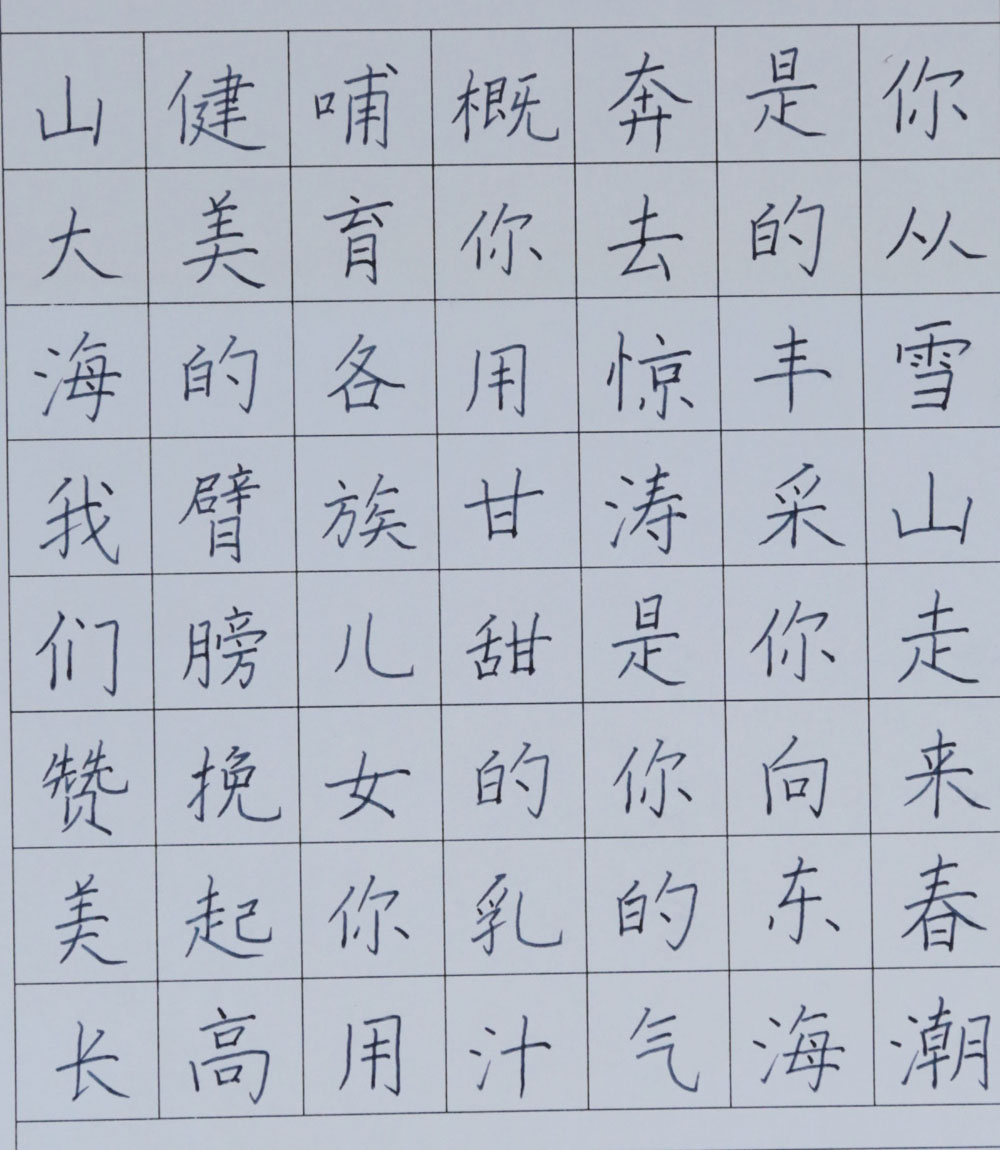 你从雪山走来春潮
是的丰采你向东海
奔去惊涛是你的气
概你用甘甜的乳汁
哺育各族儿女你用
健美的臂膀挽起高
山大海我们赞美长